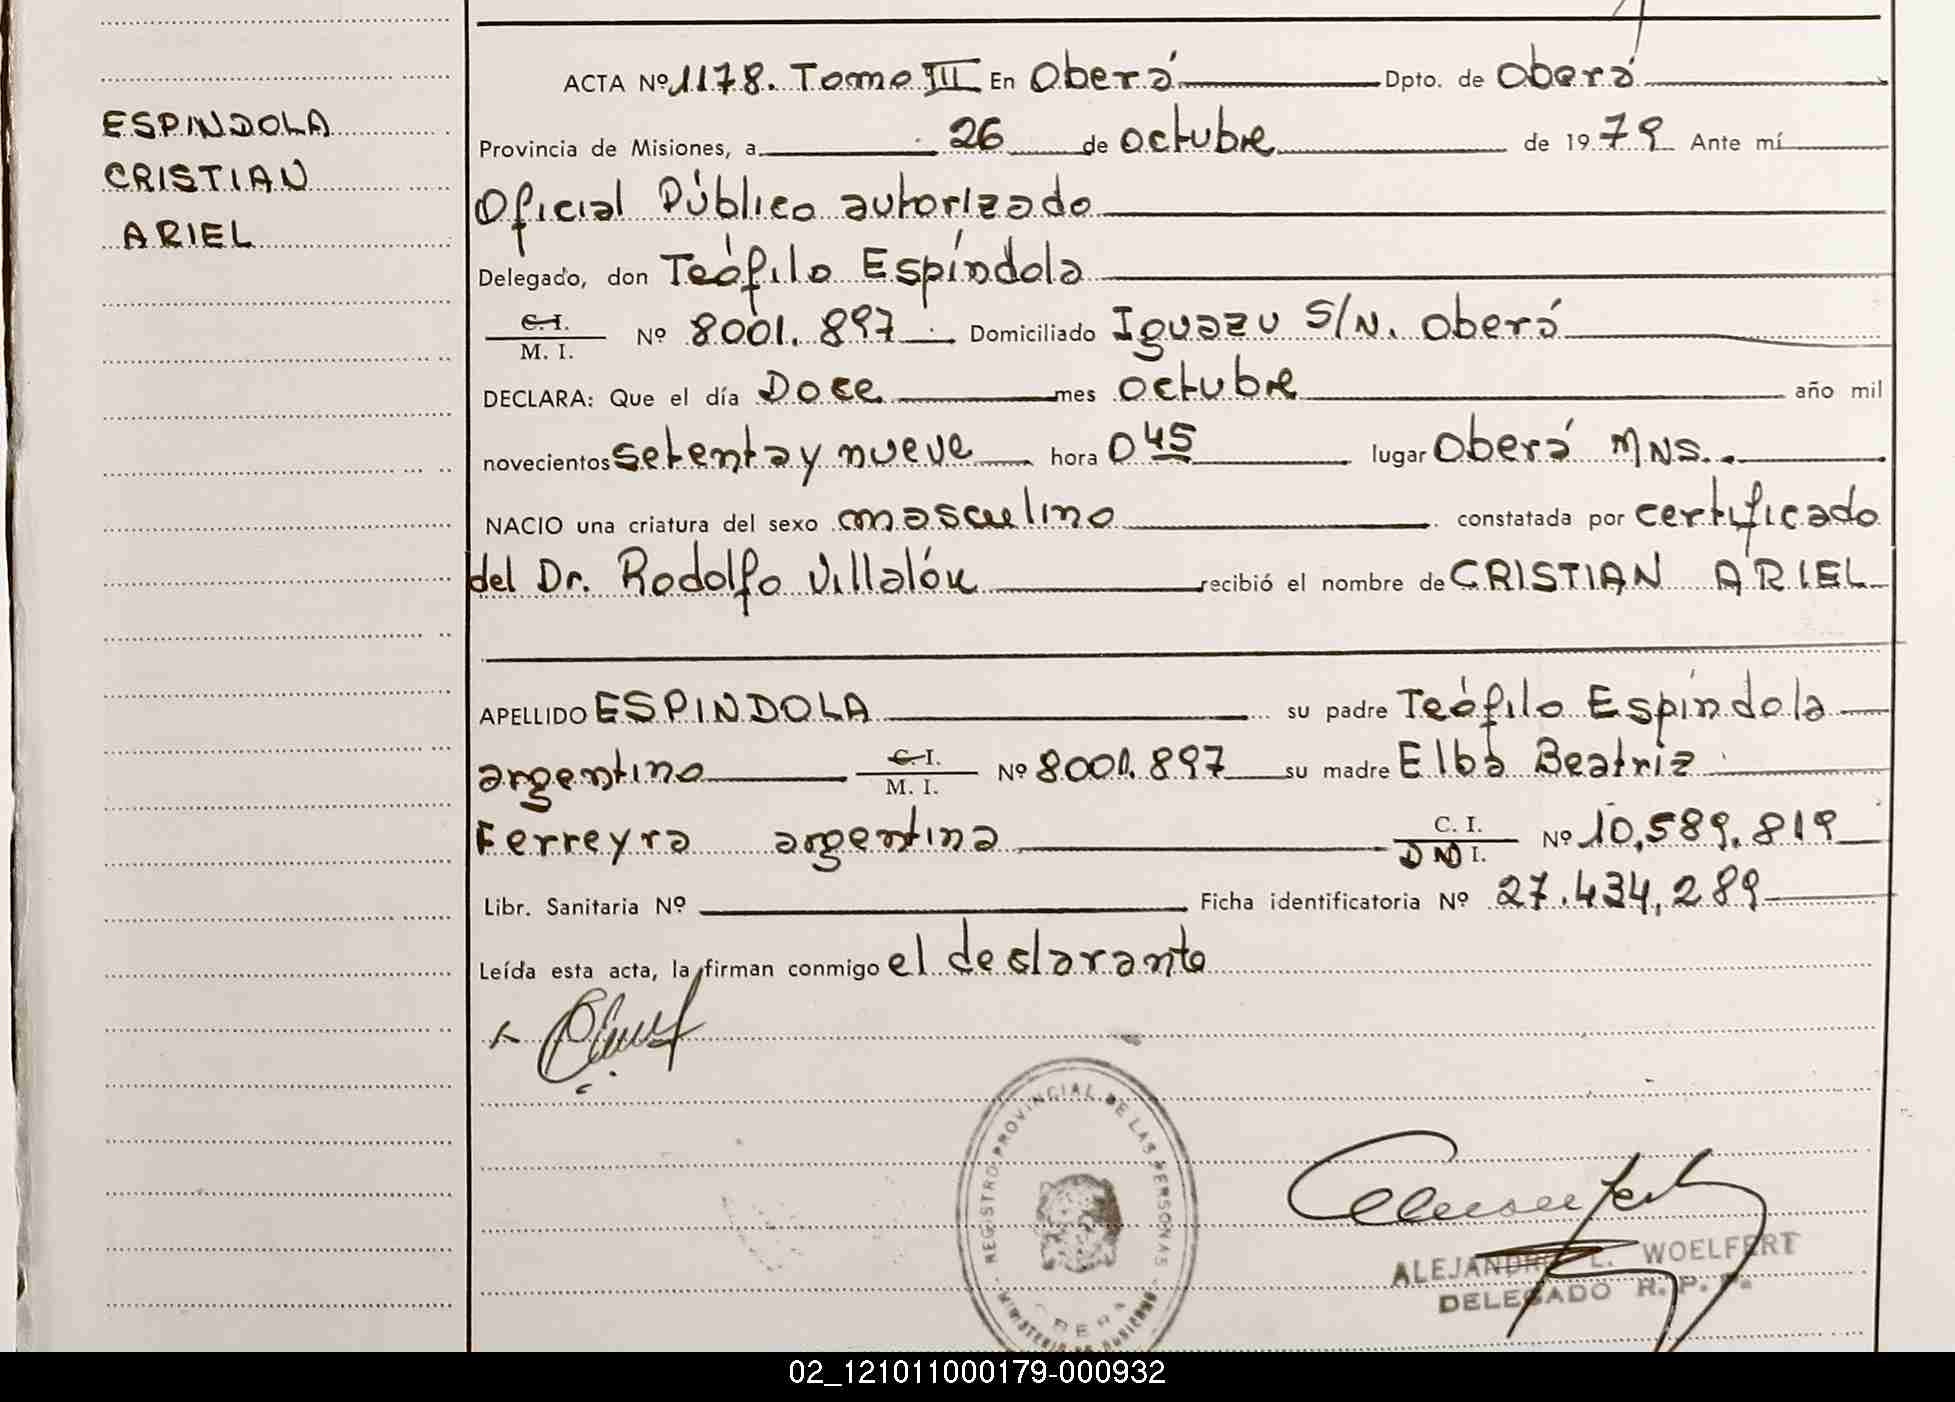 ESPINDOLA
CRISTIAN
ARIEL
ACTA Nº 1178. Tomo III En Oberá Dpto. de Oberá
Provincia de Misiones, a 26 de octubre de 1979 Ante mí
Oficial Público autorizado
Delegado, don Teófilo Espíndola
C. I.
M. I. Nº 8001.897 Domiciliado Iguazu S/N. Oberá
DECLARA: Que el día Doce mes octubre año mil
novecientos setenta y nueve hora 0 45 lugar Oberá MNS.
NACIO una criatura del sexo masculino constatada por certificado
del Dr. Rodolfo Villalón recibió el nombre de CRISTIAN ARIEL
APELLIDO ESPINDOLA su padre Teófilo Espíndola
argentino C. I. M. I. Nº 8001.897 su madre Elba Beatriz
Ferreyra argentina C. I. DNI. Nº 10.589.819
Libr. Sanitaria Nº Ficha identificatoria Nº 27.434.289
Leída esta acta, la firman conmigo el declarante
REGISTRO PROVINCIAL DE LAS PERSONAS
MINISTERIO DE GOBIERNO
OBERA
ALEJANDRO L. WOELFERT
DELEGADO R. P. P.
02_121011000179-000932